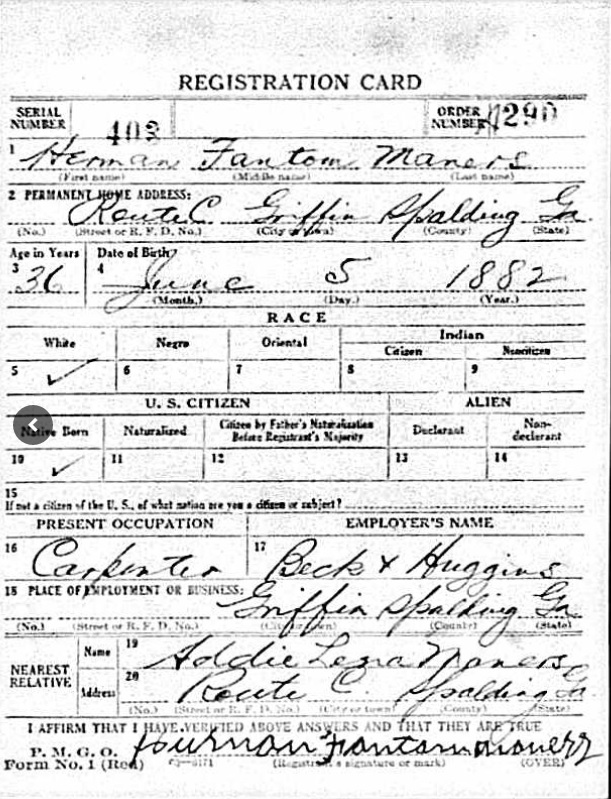 REGISTRATION CARD
SERIAL NUMBER 403 ORDER NUMBER 290
1 Herman Fantom Maners
(First name) (Middle name) (Last name)
2 PERMANENT HOME ADDRESS:
Route C Griffin Spalding Ga.
(No.) (Street or R. F. D. No.) (City or town) (County) (State)
Age in Years Date of Birth
3 36 4 June 5 1882
(Month.) (Day.) (Year.)
RACE
White Negro Oriental Indian
Citizen Noncitizen
5 ✓ 6 7 8 9
U. S. CITIZEN ALIEN
Native Born Naturalized Citizen by Father's Naturalization Before Registrant's Majority Declarant Non-declarant
10 ✓ 11 12 13 14
15
If not a citizen of the U. S., of what nation are you a citizen or subject?
PRESENT OCCUPATION EMPLOYER'S NAME
16 Carpenter 17 Beck & Huggins
18 PLACE OF EMPLOYMENT OR BUSINESS:
Griffin Spalding Ga
(No.) (Street or R. F. D. No.) (City or town) (County) (State)
NEAREST RELATIVE Name 19 Addie Lena Maners
Address 20 Route C Spalding Ga
(No.) (Street or R. F. D. No.) (City or town) (County) (State)
I AFFIRM THAT I HAVE VERIFIED ABOVE ANSWERS AND THAT THEY ARE TRUE
P. M. G. O.
Form No. 1 (Red) Fantom
(Registrant's signature or mark) (OVER)